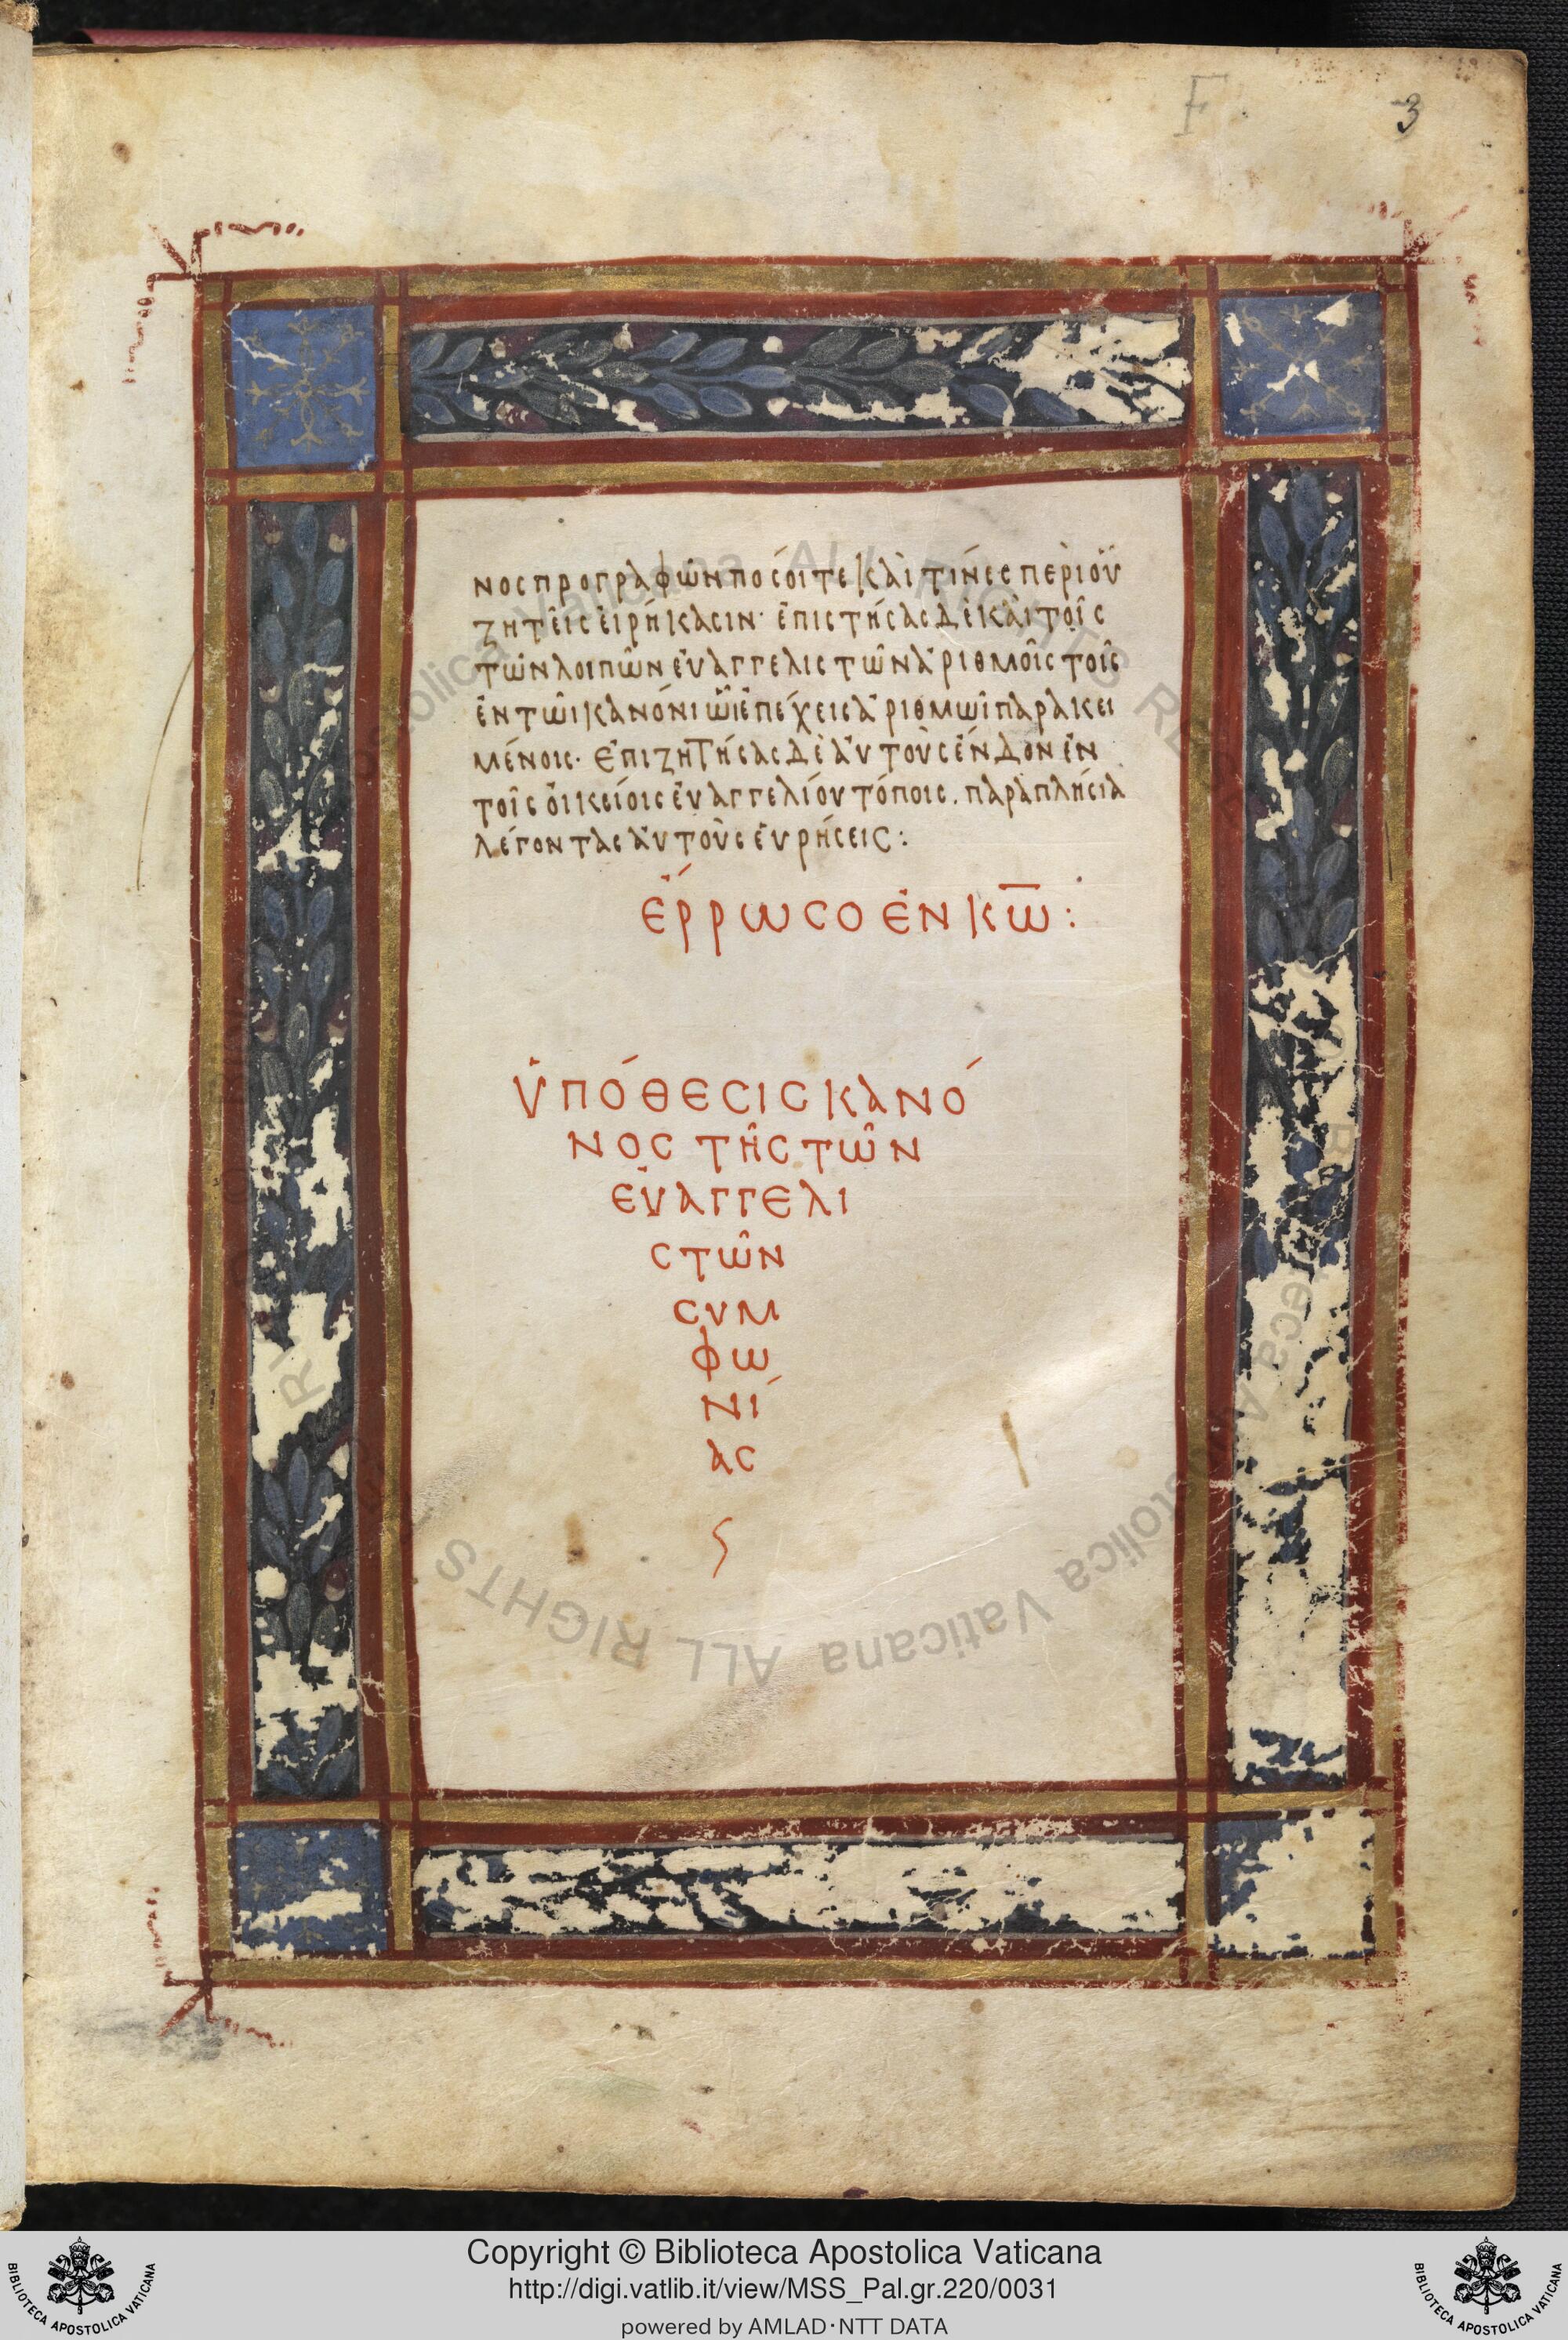 F.
3
νοσπρογραφῶν πόσοι τε καὶ τίνες περὶ οὗ
ζητεῖς εἰρήκασιν· ἐπιστήσας δὲ καὶ τοῖς
τῶν λοιπῶν εὐαγγελιστῶν ἀριθμοῖς τοῖς
ἐν τῶι κανόνι ὧι ἐπέχεις ἀριθμῶι παρακει
μένοις· ἐπιζητήσας δὲ αὐτοὺς ἔνδον ἐν
τοῖς οἰκείοις εὐαγγελίου τόποις. παραπλήσια
λέγοντας αὐτοὺς εὑρήσεις:
ἔρρωσο ἐν κ̅ω̅:
ὑπόθεσις κανό
νος τῆς τῶν
εὐαγγελι
στῶν
συμ
φω
νί
ας
Copyright © Biblioteca Apostolica Vaticana
http://digi.vatlib.it/view/MSS_Pal.gr.220/0031
powered by AMLAD·NTT DATA
BIBLIOTECA APOSTOLICA VATICANA
BIBLIOTECA APOSTOLICA VATICANA